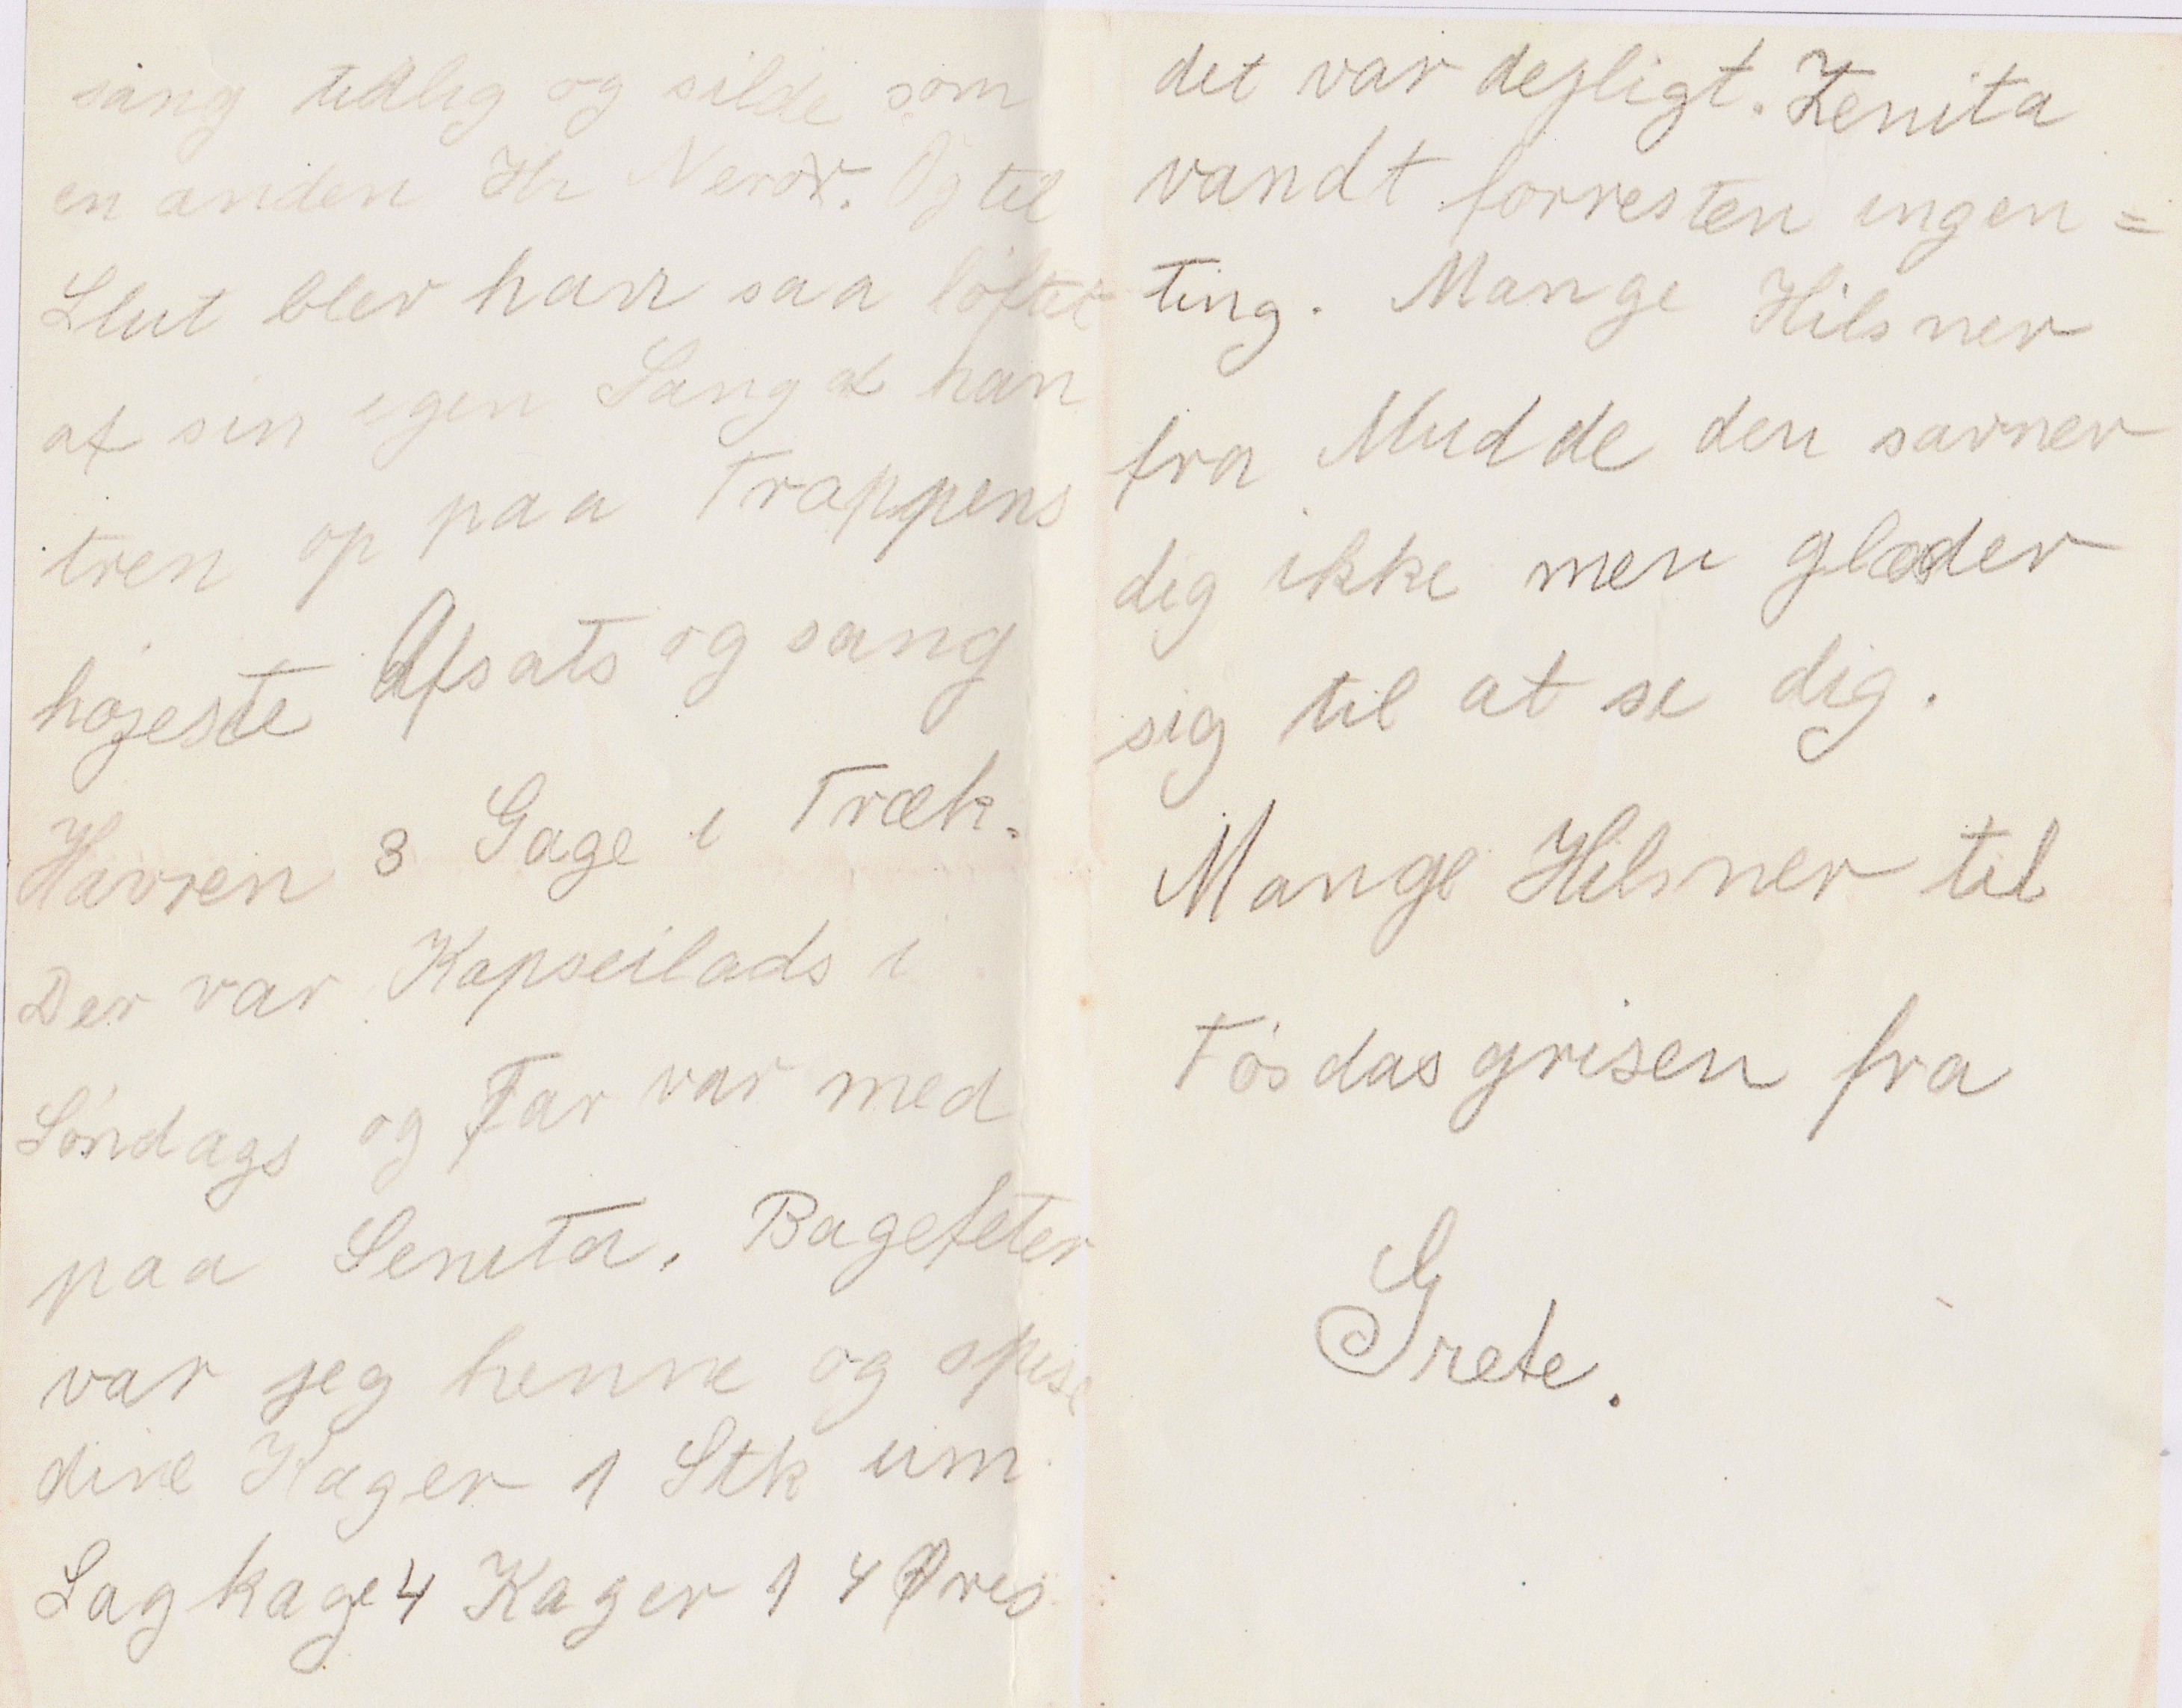 sang tidlig og silde som
en anden Hr Neror. Og til
Slut blev han saa løftet
af sin egen Sang at han
tren op paa Trappens
højeste Afsats og sang
Havren 3 Gage i Træk.
Der var Kapseilads i
Søndags og Far var med
paa Senita. Bagefeter
var jeg henne og spise
dine Kager 1 Stk um
Lagkage 4 Kager 1 4 Øres
det var dejligt. Zenita
vandt forresten ingen=
ting. Mange Hilsner
fra Mudde den savner
dig ikke men glæder
sig til at se dig.
Mange Hilsner til
Tøsdasgrisen fra
Grete.